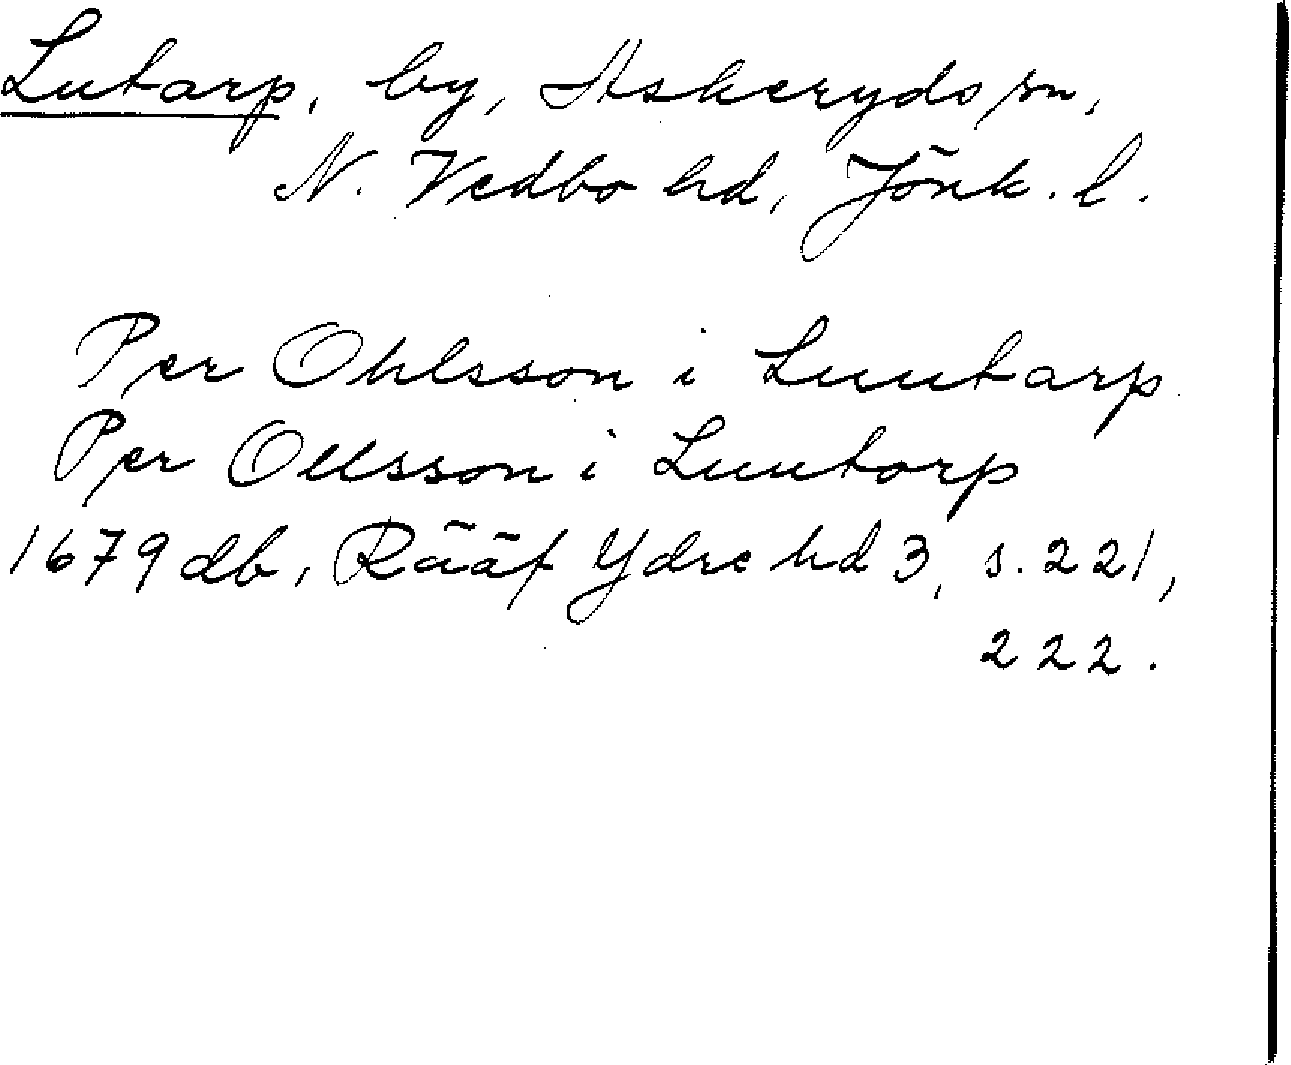 Lutarp, by, Askeryds sn,
N. Vedbo hd, Jönk. l.
Per Ohlsson i Luutarp.
Per Ollsson i Luutorp
1679 db, Rääf Ydre hd 3, s. 221,
222.